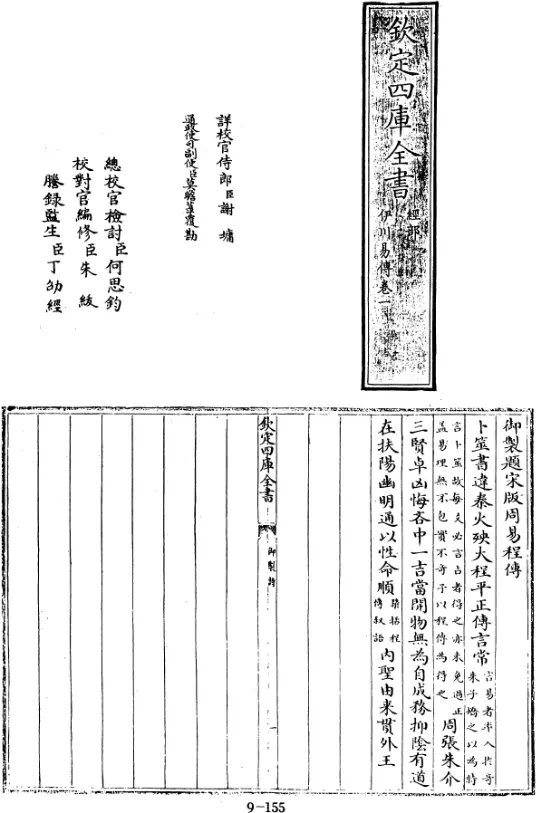 欽定四庫全書
經部
伊川易傳卷一
詳校官侍郎臣謝墉
通政使司副使臣莫瞻菉覆勘
總校官檢討臣何思鈞
校對官編修臣朱紱
謄錄監生臣丁幼經
御製題宋版周易程傳
卜筮書違秦火殃大程平正傳言常言易者率入於奇朱子矯之以為特
言卜筮故每爻必言占者得之亦未免過正盖易理無不包實不奇予以程傳為得之周張朱介
三賢卓凶悔吝中一吉當開物無為自成務抑陰有道
在扶陽幽明通以性命順檃括程傳叙語內聖由来貫外王
欽定四庫全書
御製詩
9-155